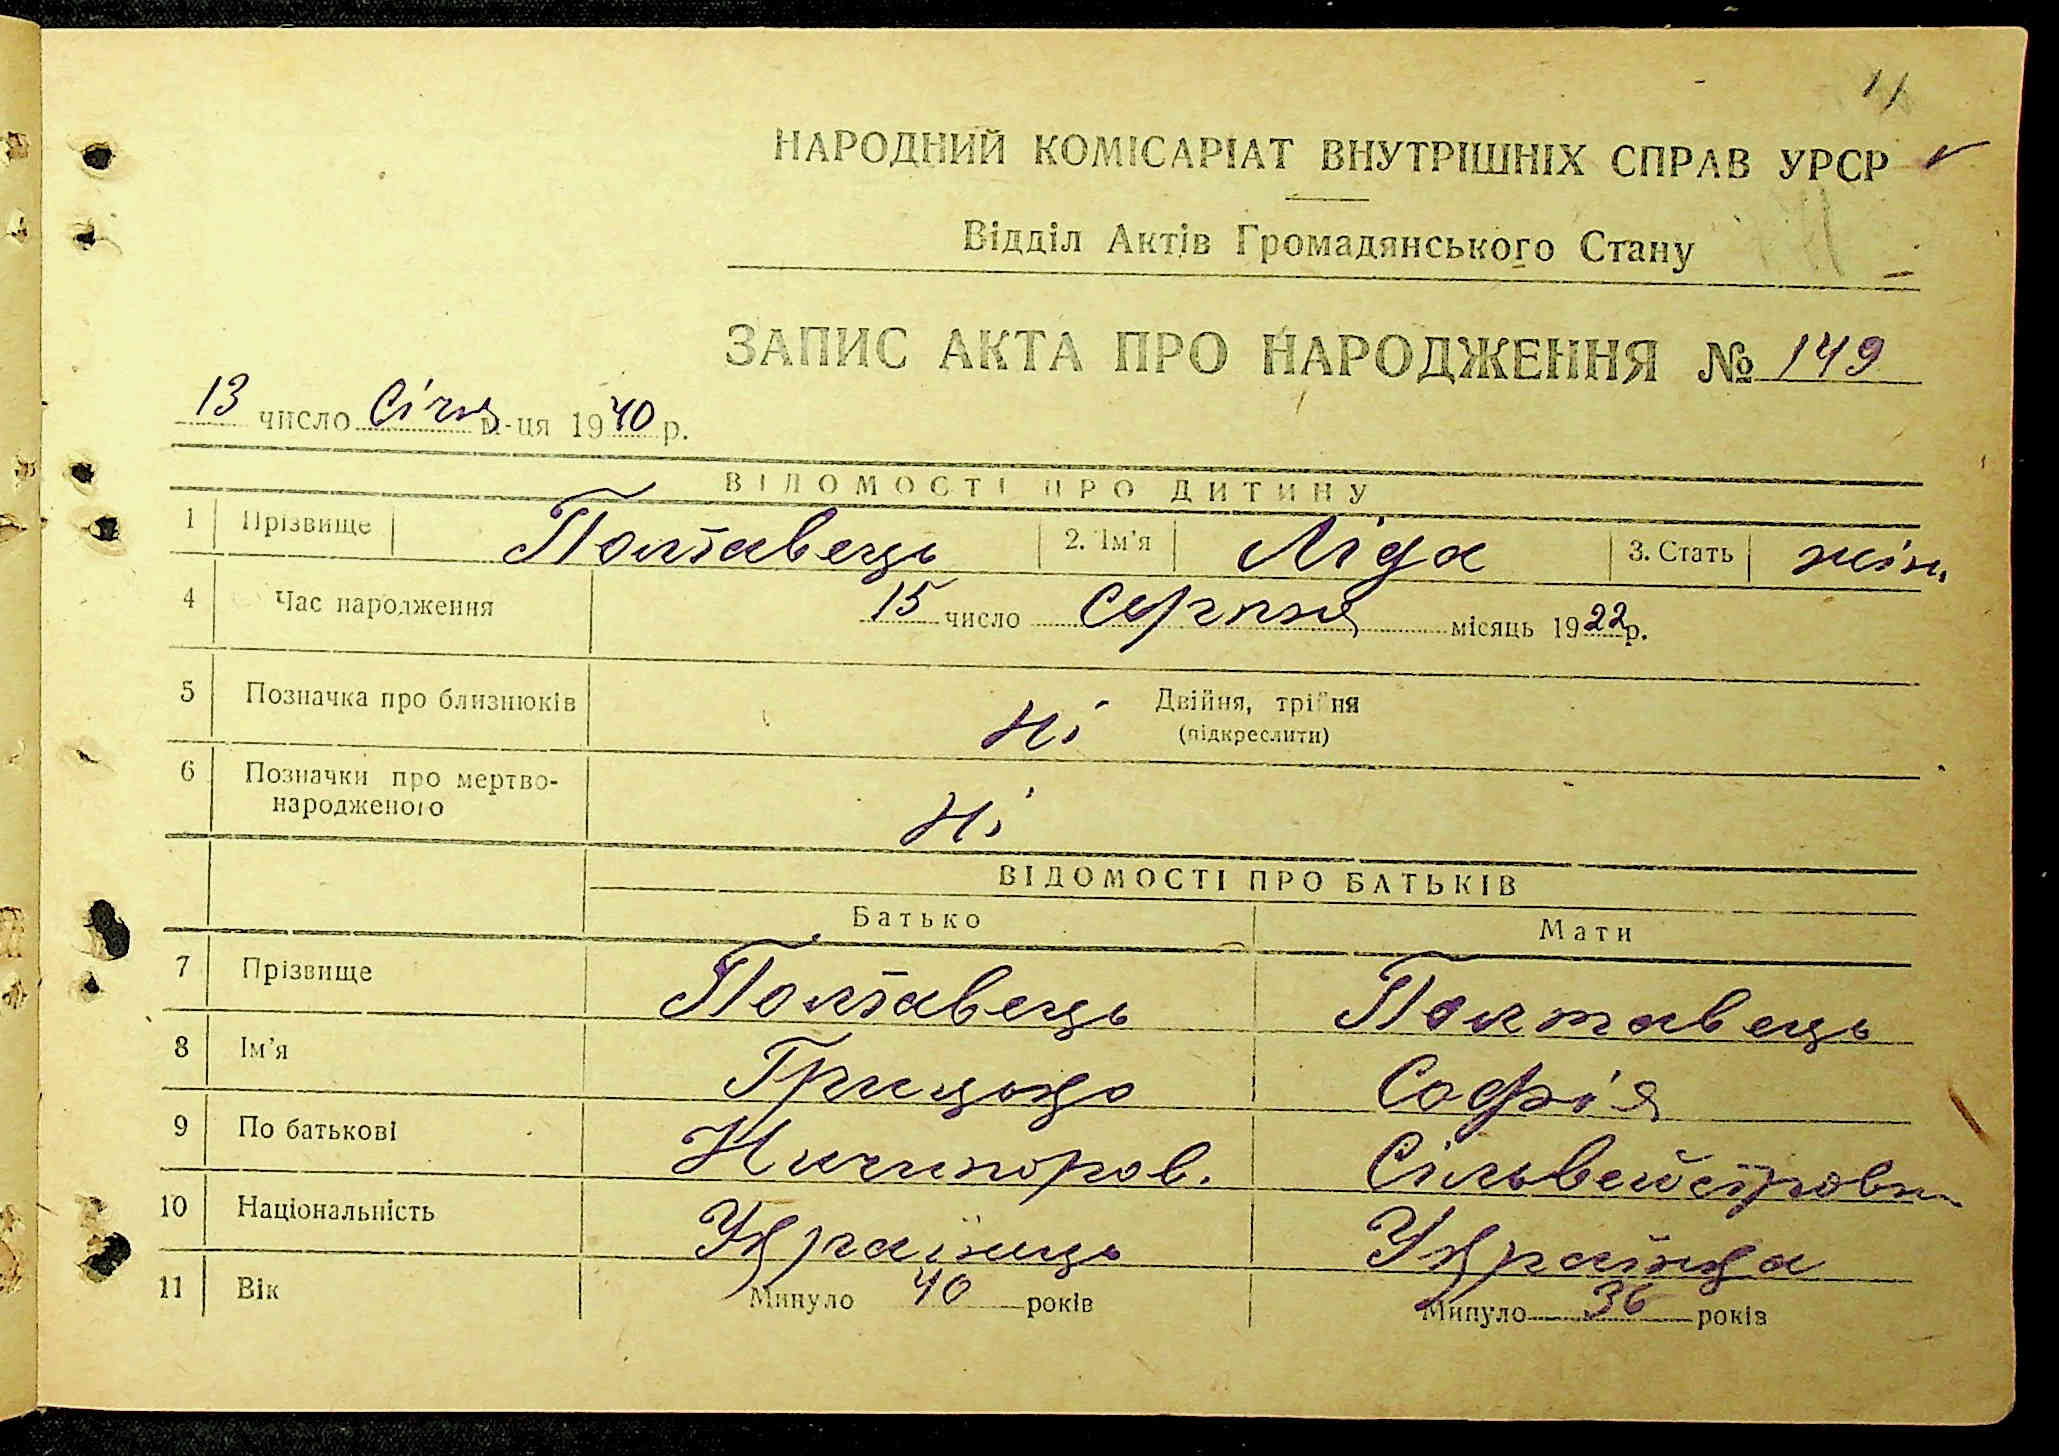 11
НАРОДНИЙ КОМІСАРІАТ ВНУТРІШНІХ СПРАВ УРСР
Відділ Актів Громадянського Стану
ЗАПИС АКТА ПРО НАРОДЖЕННЯ № 149
13 число Січня м-ця 1940 р.
ВІДОМОСТІ ПРО ДИТИНУ
1 Прізвище Полтавець 2. Ім'я Ліда 3. Стать жін.
4 Час народження 15 число Серпня місяць 1922 р.
5 Позначка про близнюків Ні Двійня, трійня
(підкреслити)
6 Позначки про мертво-
народженого Ні
ВІДОМОСТІ ПРО БАТЬКІВ
Батько Мати
7 Прізвище Полтавець Полтавець
8 Ім'я Грицько Софія
9 По батькові Ничипоров. Сільвейстровн
10 Національність Українець Українка
11 Вік Минуло 40 років Минуло 36 років